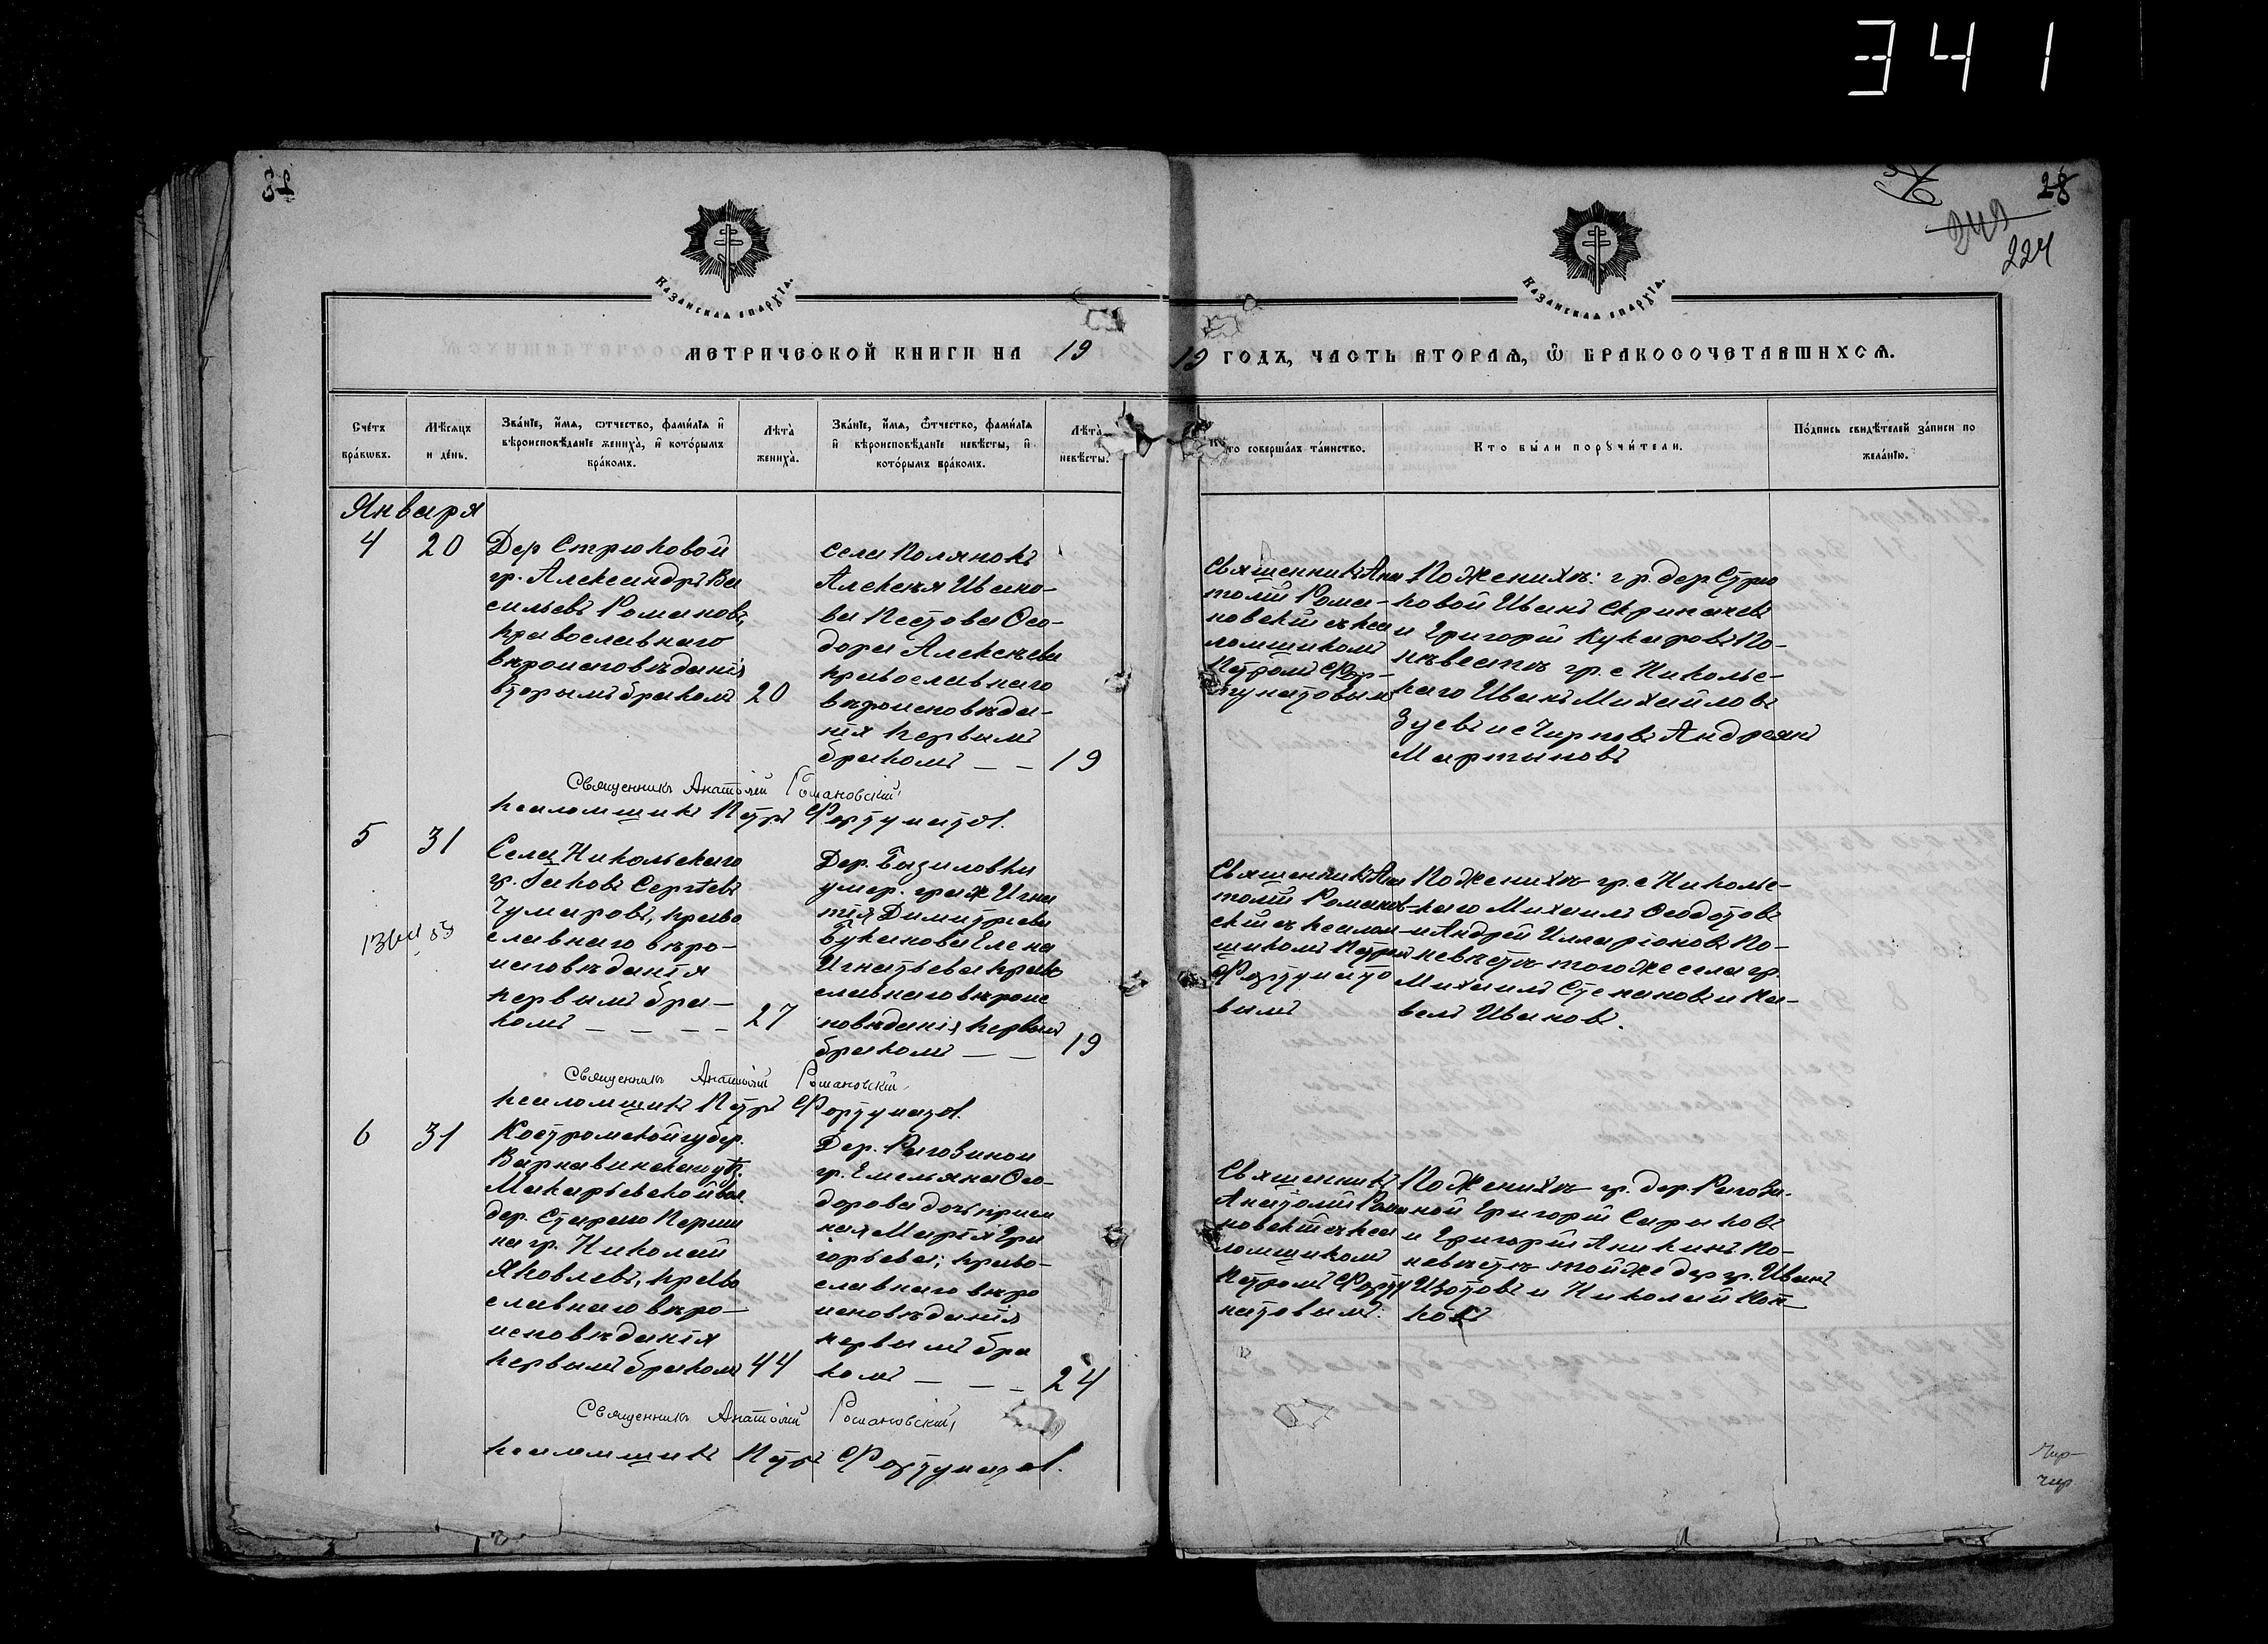 341
28
224
Казанская епархїѧ.
Казанская епархїѧ.
МЕТРИЧЕСКОЙ КНИГИ НА 19
19 ГОДЪ, ЧАСТЬ ВТОРАѦ, Ѿ БРАКОСОЧЕТАВШИХСѦ.
Счетъ браковъ.
Мѣсяцъ и день.
Званіе, имя, отчество, фамилія и вѣроисповѣданіе жениха, и которымъ бракомъ.
Лѣта жениха.
Званіе, имя, отчество, фамилія и вѣроисповѣданіе невѣсты, и которымъ бракомъ.
Лѣта невѣсты.
Кто совершалъ таинство.
Кто были поручители.
Подпись свидѣтелей записи по желанію.
Января
4 20
Дер Стрюковой
гр. Александръ Ва
сильевъ Романовъ,
православнаго
вѣроисповѣданія
вторымъ бракомъ 20
села Полянокъ
Алексѣя Ивано-
ва Пестова Ѳео-
дора Алексѣева
православнаго
вѣроисповѣда-
нія первымъ
бракомъ — — 19
Священникъ Ана
толій Рома-
новскій съ пса
ломщикомъ
Петромъ Фор-
тунатовымъ
По женихѣ: гр. дер Стрю
ковой Иванъ
и Григорій По-
невѣстѣ гр. с Николье-
каго Иванъ Михайловъ
Зуевъ и с Чирповъ Андреянъ
Мартыновъ
Священникъ Анатолій Романовскій
псаломщикъ Петръ Фортунатов.
5 31
Села Никольскаго
гр. Іаковъ Сергѣевъ
Чумаровъ, право
славнаго вѣро-
исповѣданія
первымъ бра-
комъ — — — — 27
умер. граж Игна
тія Димитріева
Буканова Елена
Игнатьева право
славнаго вѣроис
повѣданія, первымъ
бракомъ — — 19
Священникъ Ана
толій Романов-
скій съ псалом-
щикомъ Петромъ
Фортунато
вымъ
По женихѣ гр. с Николье-
каго Михаилъ Ѳеодотовъ
и Андрей Илларіоновъ По-
невѣстѣ того же села гр.
Михаилъ Степановъ и Па-
велъ Ивановъ.
Священникъ Анатолій Романовскій
псаломщикъ Петръ Фортунатов.
6 31
Костромской губер.
Варнавинскаго уѣ.
Макарьевской вол.
дер. Стараго Перши
на гр. Николай
Яковлевъ, право
славнаго вѣро-
исповѣданія
первымъ бракомъ 44
Дер. Рагозиной
гр. Емельяна Ѳео-
дорова дочь прием
ная Марія Гри
горьева; право-
славнаго вѣро
исповѣданія
первымъ бра
комъ — — — 24
Священникъ
Анатолій Рома
новскій съ пса
ломщикомъ
Петромъ Форту
натовымъ.
По женихѣ гр. дер. Рагози-
ной Григорій Сарыковъ
и Григорій Аникинъ По-
невѣстѣ той же дер гр. Иванъ
Изотовъ и Николай
Священникъ Анатолій Романовскій,
псаломщикъ Петръ Фортунатов.